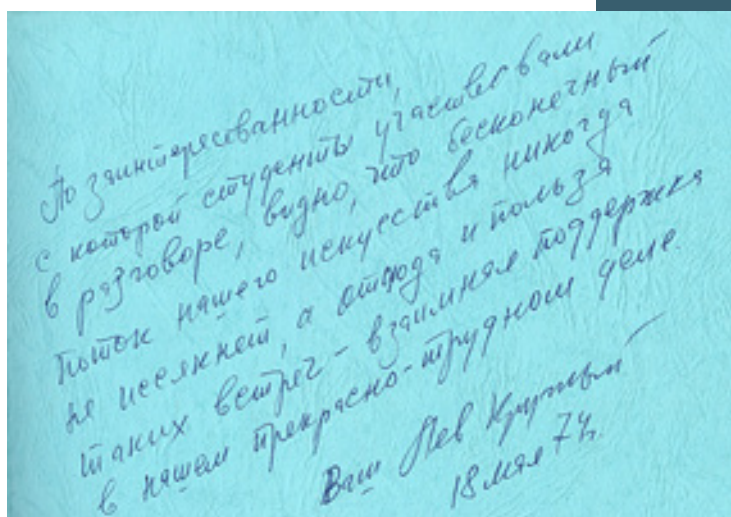 По заинтересованности,
с которой студенты участвовали
в разговоре, видно, что бесконечный
поток нашего искусства никогда
не иссякнет, а отсюда и польза
таких встреч - взаимная поддержка
в нашем прекрасно-трудном деле.
Ваш Лев Круглый
18 мая 74г.